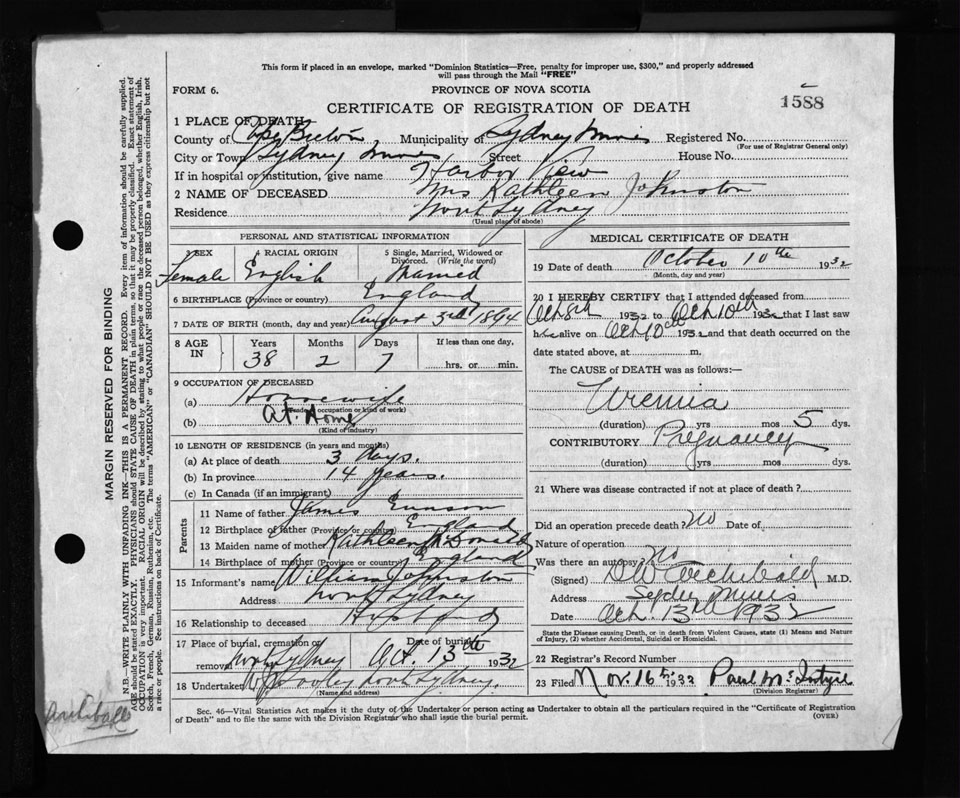 This form if placed in an envelope, marked "Dominion Statistics—Free, penalty for improper use, $300," and properly addressed
will pass through the Mail "FREE"
FORM 6.
PROVINCE OF NOVA SCOTIA
CERTIFICATE OF REGISTRATION OF DEATH
1588
1 PLACE OF DEATH
County of Cape Breton Municipality of Sydney Mines Registered No.
(For use of Registrar General only)
City or Town Sydney Mines Street House No.
If in hospital or institution, give name Harbor View
2 NAME OF DECEASED Mrs Kathleen Johnston
Residence North Sydney
(Usual place of abode)
PERSONAL AND STATISTICAL INFORMATION
3 SEX 4 RACIAL ORIGIN 5 Single, Married, Widowed or
Divorced. (Write the word)
Female English Married
6 BIRTHPLACE (Province or country) England
7 DATE OF BIRTH (month, day and year) August 3rd 1894
8 AGE IN Years Months Days If less than one day,
38 2 7 hrs. or min.
9 OCCUPATION OF DECEASED
(a) Housewife
(Trade, occupation or kind of work)
(b) At Home
(Kind of industry)
10 LENGTH OF RESIDENCE (in years and months)
(a) At place of death 3 days.
(b) In province 14 years.
(c) In Canada (if an immigrant)
Parents
11 Name of father James
12 Birthplace of father (Province or country) England
13 Maiden name of mother Kathleen McDonald
14 Birthplace of mother (Province or country) England
15 Informant's name William Johnston
Address North Sydney
16 Relationship to deceased Husband
17 Place of burial, cremation or Date of burial
removal North Sydney Oct. 13th 1932
18 Undertaker North Sydney.
(Name and address)
MEDICAL CERTIFICATE OF DEATH
19 Date of death October 10th 1932
(Month, day and year)
20 I HEREBY CERTIFY that I attended deceased from
Oct 8th 1932 to Oct 10th 1932 that I last saw
her alive on Oct 10th 1932 and that death occurred on
date stated above, at m.
The CAUSE of DEATH was as follows:—
Uremia
(duration) yrs mos 5 dys.
CONTRIBUTORY Pregnancy
(duration) yrs mos dys.
21 Where was disease contracted if not at place of death?
Did an operation precede death? No Date of
Nature of operation
Was there an autopsy? No
(Signed) Archibald M.D.
Address Sydney Mines
Date Oct. 13th 1932
State the Disease causing Death, or in death from Violent Causes, state (1) Means and Nature
of Injury, (2) whether Accidental, Suicidal or Homicidal.
22 Registrar's Record Number
23 Filed Nov. 16th 1932 Paul McIntyre
(Division Registrar)
Sec. 46—Vital Statistics Act makes it the duty of the Undertaker or person acting as Undertaker to obtain all the particulars required in the "Certificate of Registration
of Death" and to file the same with the Division Registrar who shall issue the burial permit.
(OVER)
MARGIN RESERVED FOR BINDING
N.B.—WRITE PLAINLY WITH UNFADING INK—THIS IS A PERMANENT RECORD. Every item of information should be carefully supplied.
AGE should be stated EXACTLY. PHYSICIANS should STATE CAUSE OF DEATH in plain terms, so that it may be properly classified. Exact statement of
OCCUPATION is very important. RACIAL ORIGIN will be described by stating to what people or race the deceased person belonged, whether English, Irish,
Scotch, French, German, Russian, Ruthenian, etc. The terms "AMERICAN" or "CANADIAN" SHOULD NOT BE USED as they express citizenship but not
a race or people. See instructions on back of Certificate.
Archibald